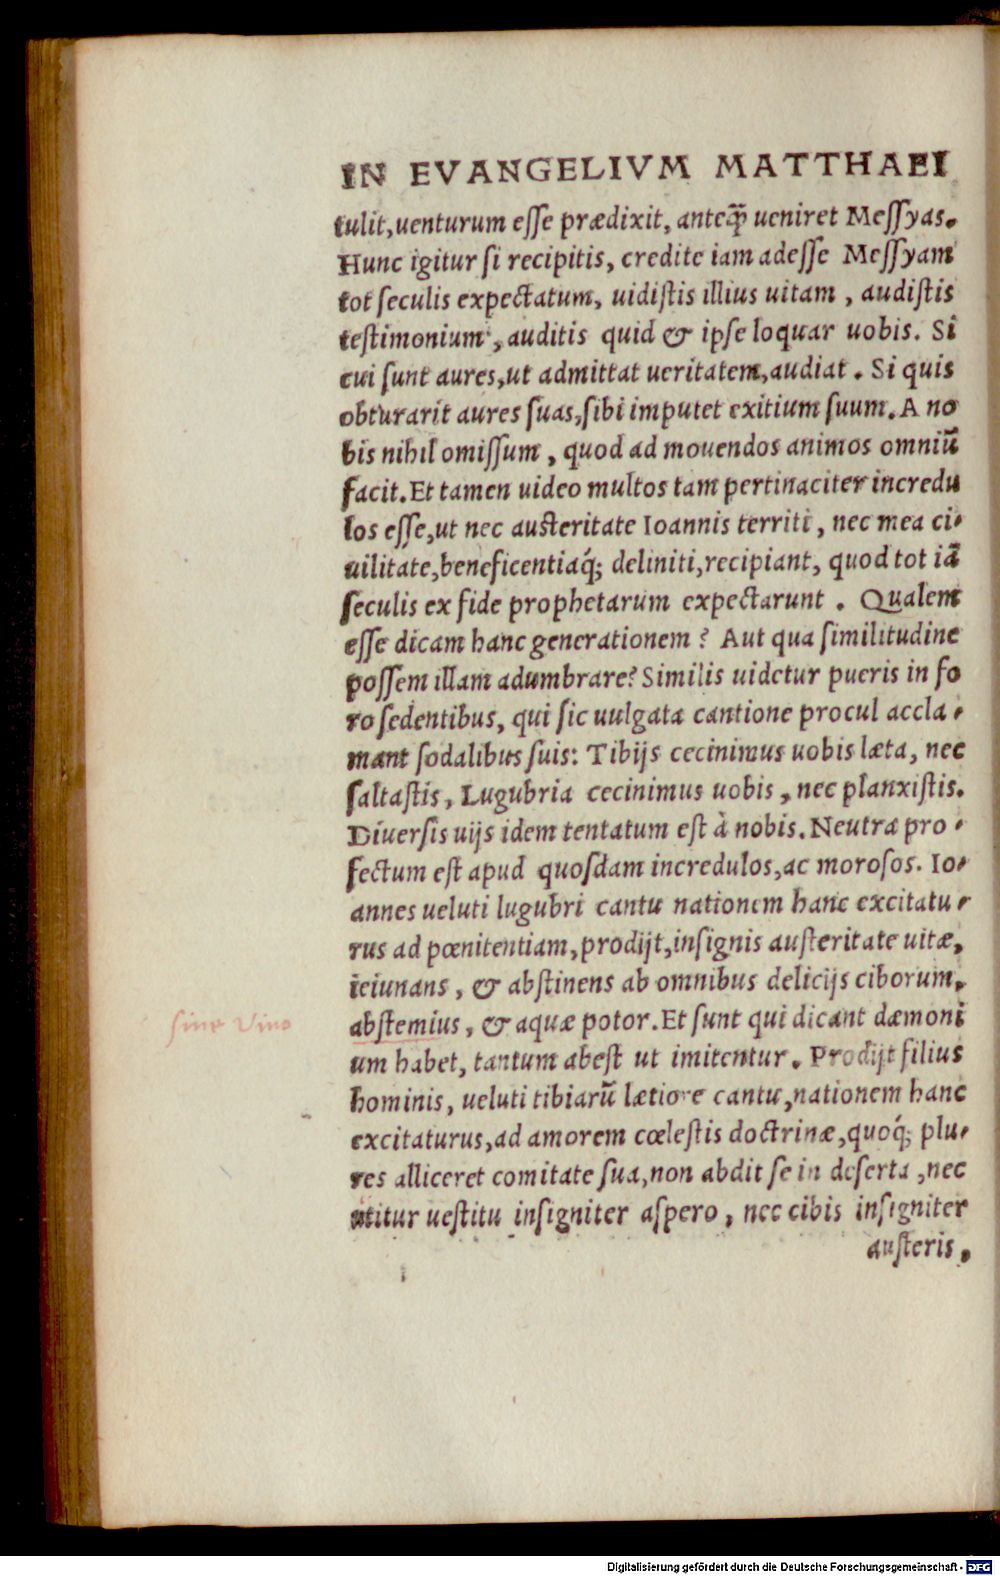 IN EVANGELIVM MATTHAEI
tulit,uenturum esse prædixit, anteq̃ ueniret Messyas.
Hunc igitur si recipitis, credite iam adesse Messyam
tot seculis expectatum, uidistis illius uitam , audistis
testimonium , auditis quid & ipse loquar uobis. Si
cui sunt aures,ut admittat ueritatem,audiat . Si quis
obturarit aures suas,sibi imputet exitium suum. A no
bis nihil omissum , quod ad mouendos animos omniũ
facit. Et tamen uideo multos tam pertinaciter incredu
los esse,ut nec austeritate Ioannis territi , nec mea ci-
uilitate,beneficentiaq́; deliniti,recipiant, quod tot iã
seculis ex fide prophetarum expectarunt . Qualem
esse dicam hanc generationem ? Aut qua similitudine
possem illam adumbrare? Similis uidetur pueris in fo
ro sedentibus, qui sic uulgata cantione procul accla-
mant sodalibus suis: Tibijs cecinimus uobis læta, nec
saltastis, Lugubria cecinimus uobis , nec planxistis.
Diuersis uijs idem tentatum est à nobis. Neutra pro-
fectum est apud quosdam incredulos,ac morosos. Io-
annes ueluti lugubri cantu nationem hanc excitatu-
rus ad pœnitentiam,prodijt,insignis austeritate uitæ,
ieiunans , & abstinens ab omnibus delicijs ciborum,
sine Vino
abstemius , & aquæ potor. Et sunt qui dicant dæmoni
um habet, tantum abest ut imitentur . Prodijt filius
hominis, ueluti tibiarũ lætiore cantu,nationem hanc
excitaturus,ad amorem cœlestis doctrinæ,quoq́; plu-
res alliceret comitate sua,non abdit se in deserta ,nec
utitur uestitu insigniter aspero , nec cibis insigniter
austeris,
Digitalisierung gefördert durch die Deutsche Forschungsgemeinschaft - DFG